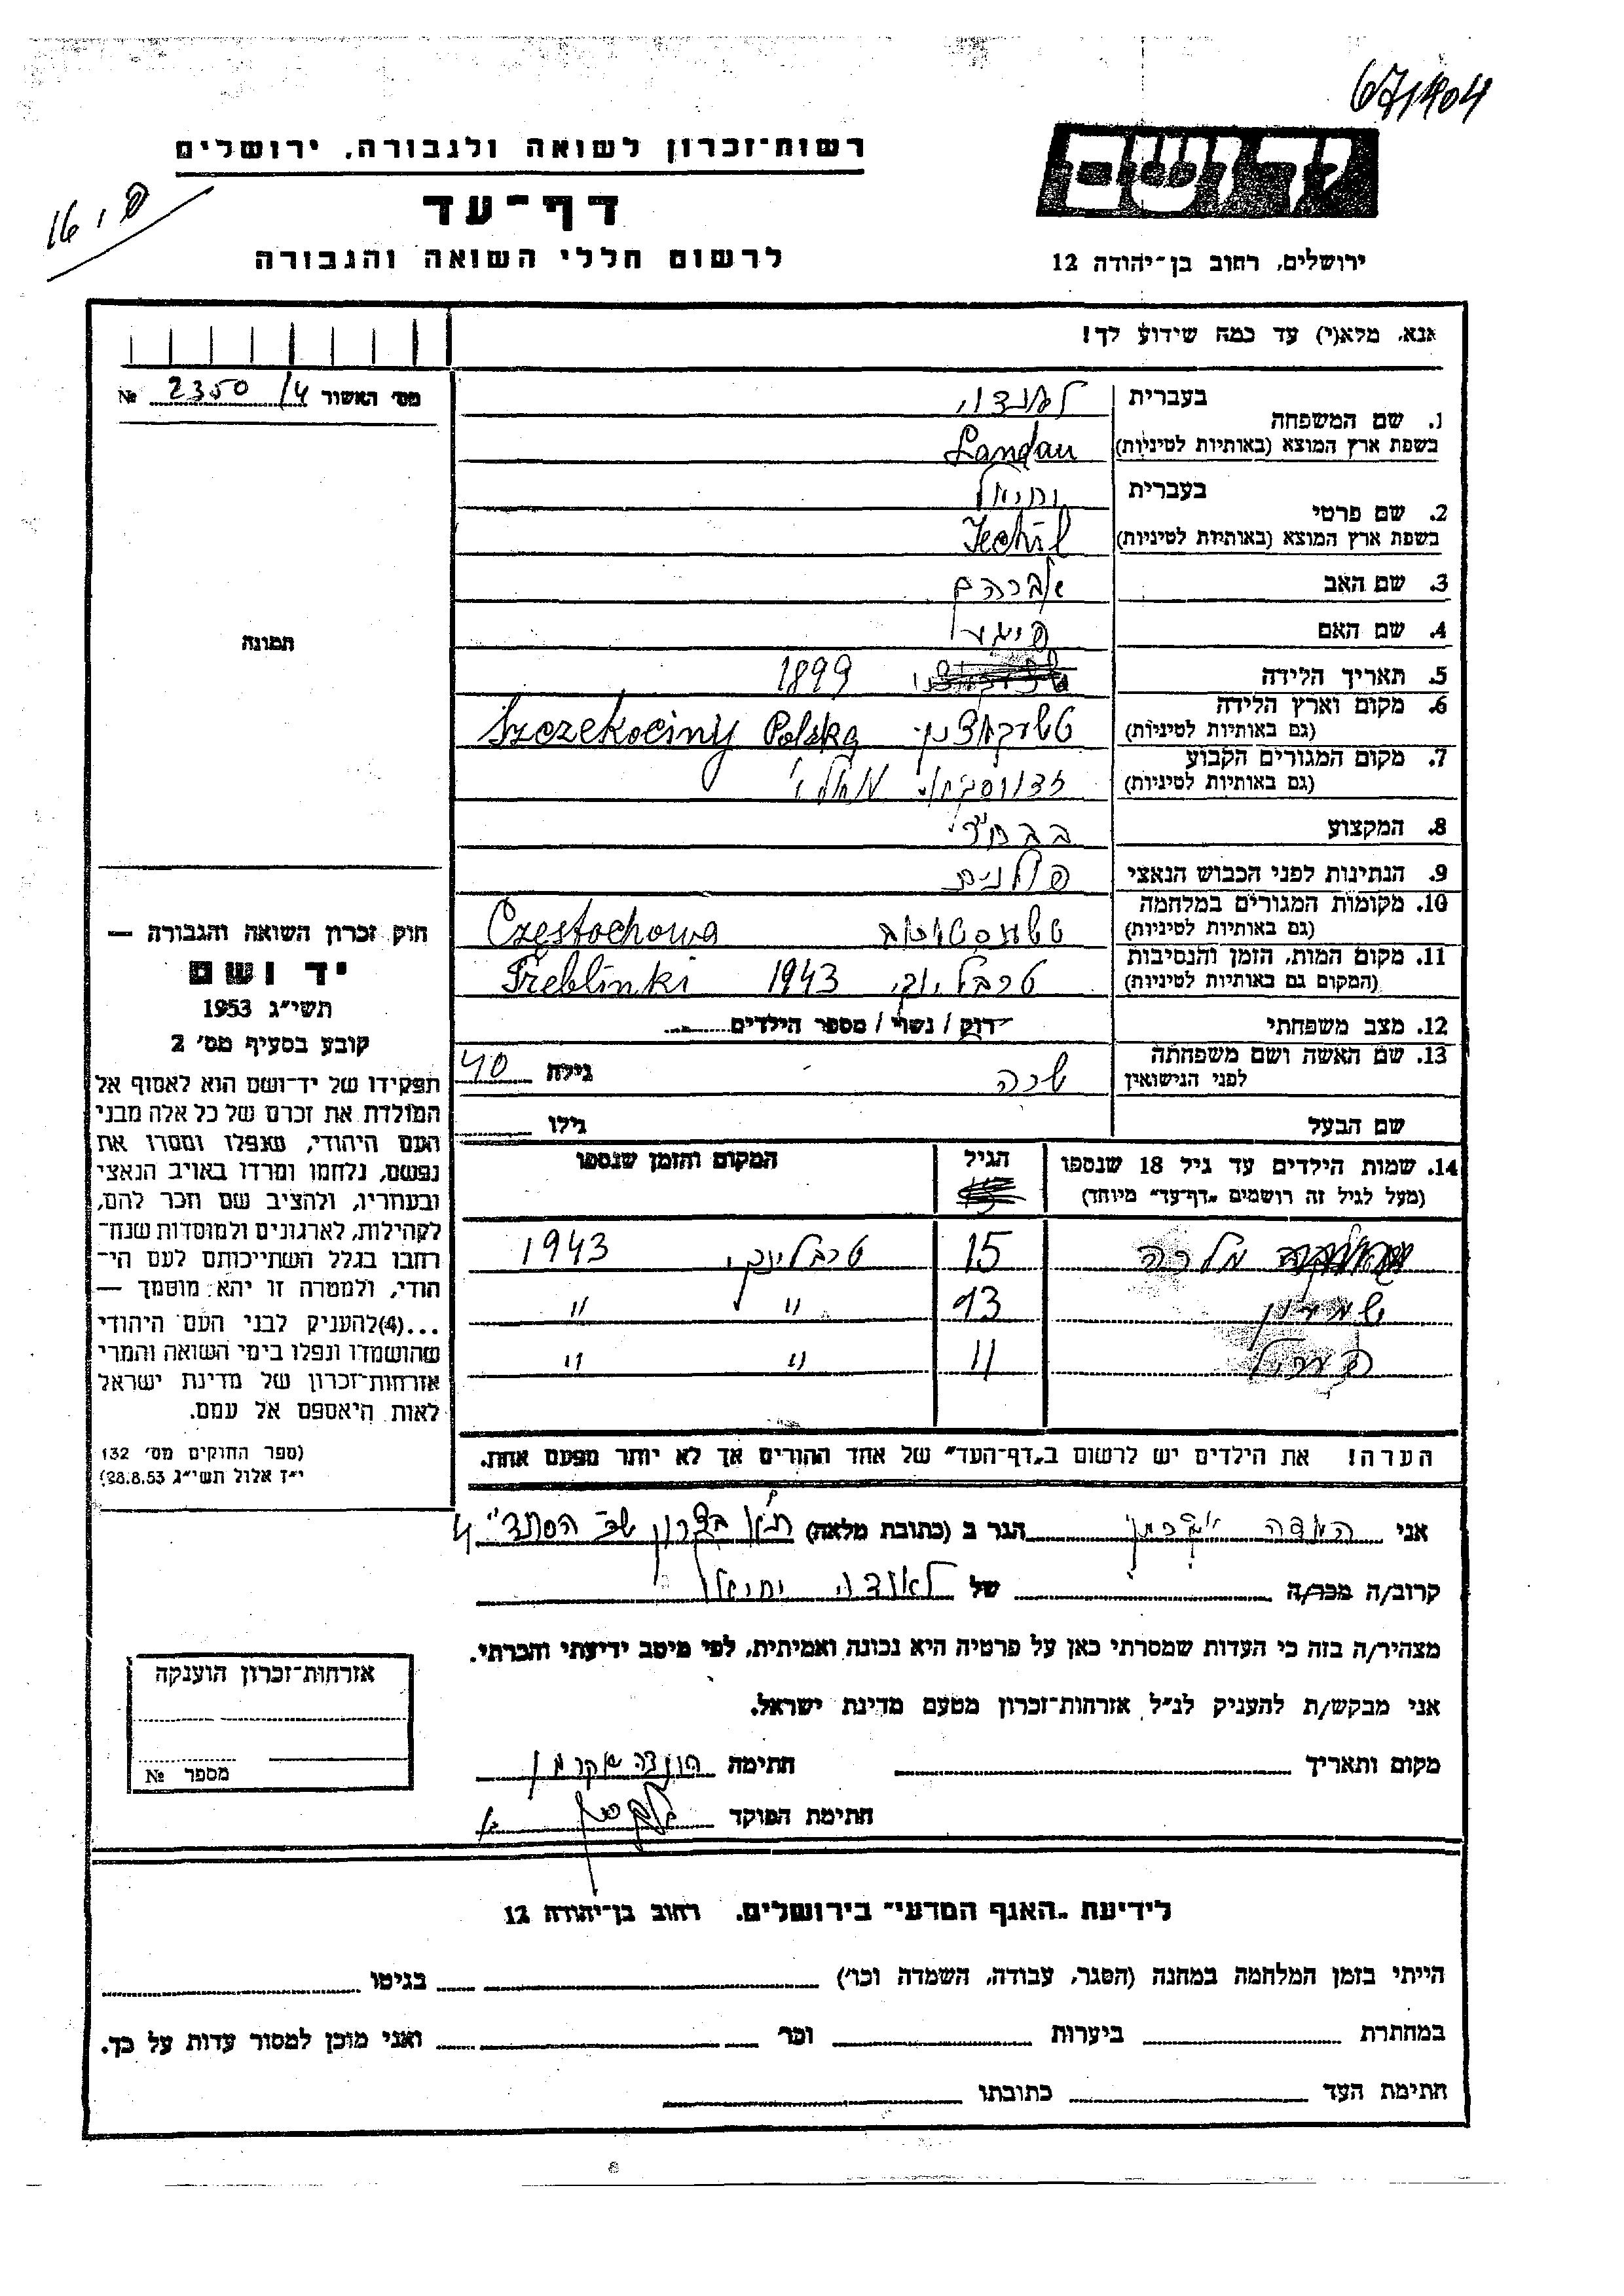 671404
רשות־זכרון לשואה ולגבורה, ירושלים
דף־עד
לרשום חללי השואה והגבורה
יד ושם
ירושלים, רחוב בן־יהודה 12
אנא, מלא(י) עד כמה שידוע לך!
מס׳ האשור 2350/4 №
1. שם המשפחה
בעברית לאנדוי
בשפת ארץ המוצא (באותיות לטיניות) Landau
2. שם פרטי
בעברית יחיאל
בשפת ארץ המוצא (באותיות לטיניות) Jechil
3. שם האב אברהם
4. שם האם
5. תאריך הלידה 1899
6. מקום וארץ הלידה
(גם באותיות לטיניות) Szczekociny Polska
7. מקום המגורים הקבוע
(גם באותיות לטיניות)
8. המקצוע
9. הנתינות לפני הכבוש הנאצי פולנית
10. מקומות המגורים במלחמה
(גם באותיות לטיניות) Częstochowa
11. מקום המות, הזמן והנסיבות
(המקום גם באותיות לטיניות) טרבלינקי 1943 Treblinki
12. מצב משפחתי רוק / נשוי / מספר הילדים
13. שם האשה ושם משפחתה
לפני הנישואין שרה גילה 40
שם הבעל גילו
14. שמות הילדים עד גיל 18 שנספו
(מעל לגיל זה רושמים „דף־עד” מיוחד)
הגיל
המקום והזמן שנספו
מלכה 15 טרבלינקי 1943
13 〃 〃
11 〃 〃
הערה! את הילדים יש לרשום ב„דף־העד” של אחד ההורים אך לא יותר מפעם אחת.
תמונה
חוק זכרון השואה והגבורה —
יד ושם
תשי״ג 1953
קובע בסעיף מס׳ 2
תפקידו של יד־ושם הוא לאסוף אל
המולדת את זכרם של כל אלה מבני
העם היהודי, שנפלו ומסרו את
נפשם, נלחמו ומרדו באויב הנאצי
ובעוזריו, ולהציב שם וזכר להם,
לקהילות, לארגונים ולמוסדות שנח־
רבו בגלל השתייכותם לעם הי־
הודי, ולמטרה זו יהא מוסמך —
...(4)להעניק לבני העם היהודי
שהושמדו ונפלו בימי השואה והמרי
אזרחות־זכרון של מדינת ישראל
לאות היאספם אל עמם.
(ספר החוקים מס׳ 132
י״ז אלול תשי״ג 28.8.53)
אני הנדה הגר ב (כתובת מלאה) ת״א בצרון 4
קרוב/ה מכר/ה של לאנדוי יחיאל
מצהיר/ה בזה כי העדות שמסרתי כאן על פרטיה היא נכונה ואמיתית, לפי מיטב ידיעתי והכרתי.
אני מבקש/ת להעניק לנ״ל אזרחות־זכרון מטעם מדינת ישראל.
מקום ותאריך חתימה
חתימת הפוקד
אזרחות־זכרון הוענקה
מספר №
לידיעת „האגף המדעי” בירושלים, רחוב בן־יהודה 12
הייתי בזמן המלחמה במחנה (הסגר, עבודה, השמדה וכו׳) בגיטו
במחתרת ביערות וכו׳ ואני מוכן למסור עדות על כך.
חתימת העד כתובתו